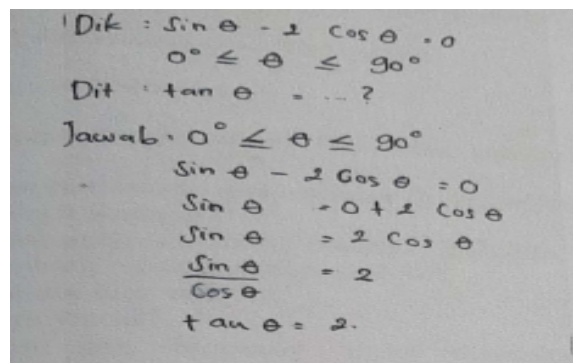 Dik : Sin θ - 2 Cos θ = 0
0° ≤ θ ≤ 90°
Dit : tan θ = ... ?
Jawab : 0° ≤ θ ≤ 90°
Sin θ - 2 Cos θ = 0
Sin θ = 0 + 2 Cos θ
Sin θ = 2 Cos θ
Sin θ / Cos θ = 2
tan θ = 2.